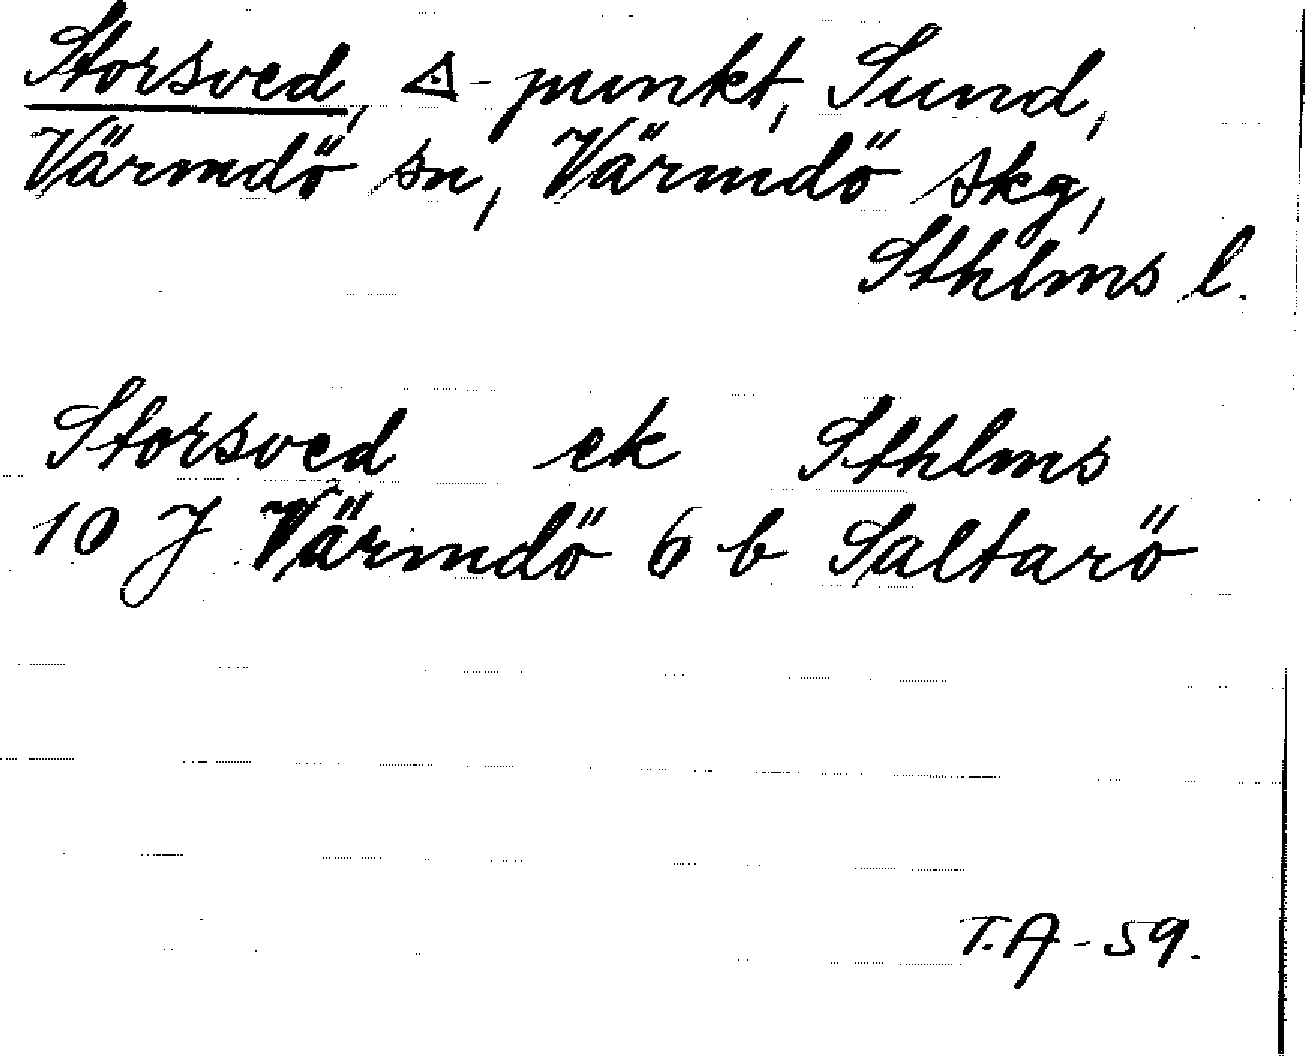 Storsved, ◬-punkt, Sund,
Värmdö sn, Värmdö skg,
Sthlms l.
Storsved ek Sthlms
10 J Värmdö 6 b Saltarö
T.A-59.